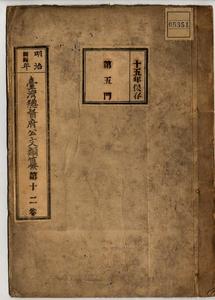 05351
十五年保存
第五門
明治
年
臺灣總督府公文類纂第十二卷